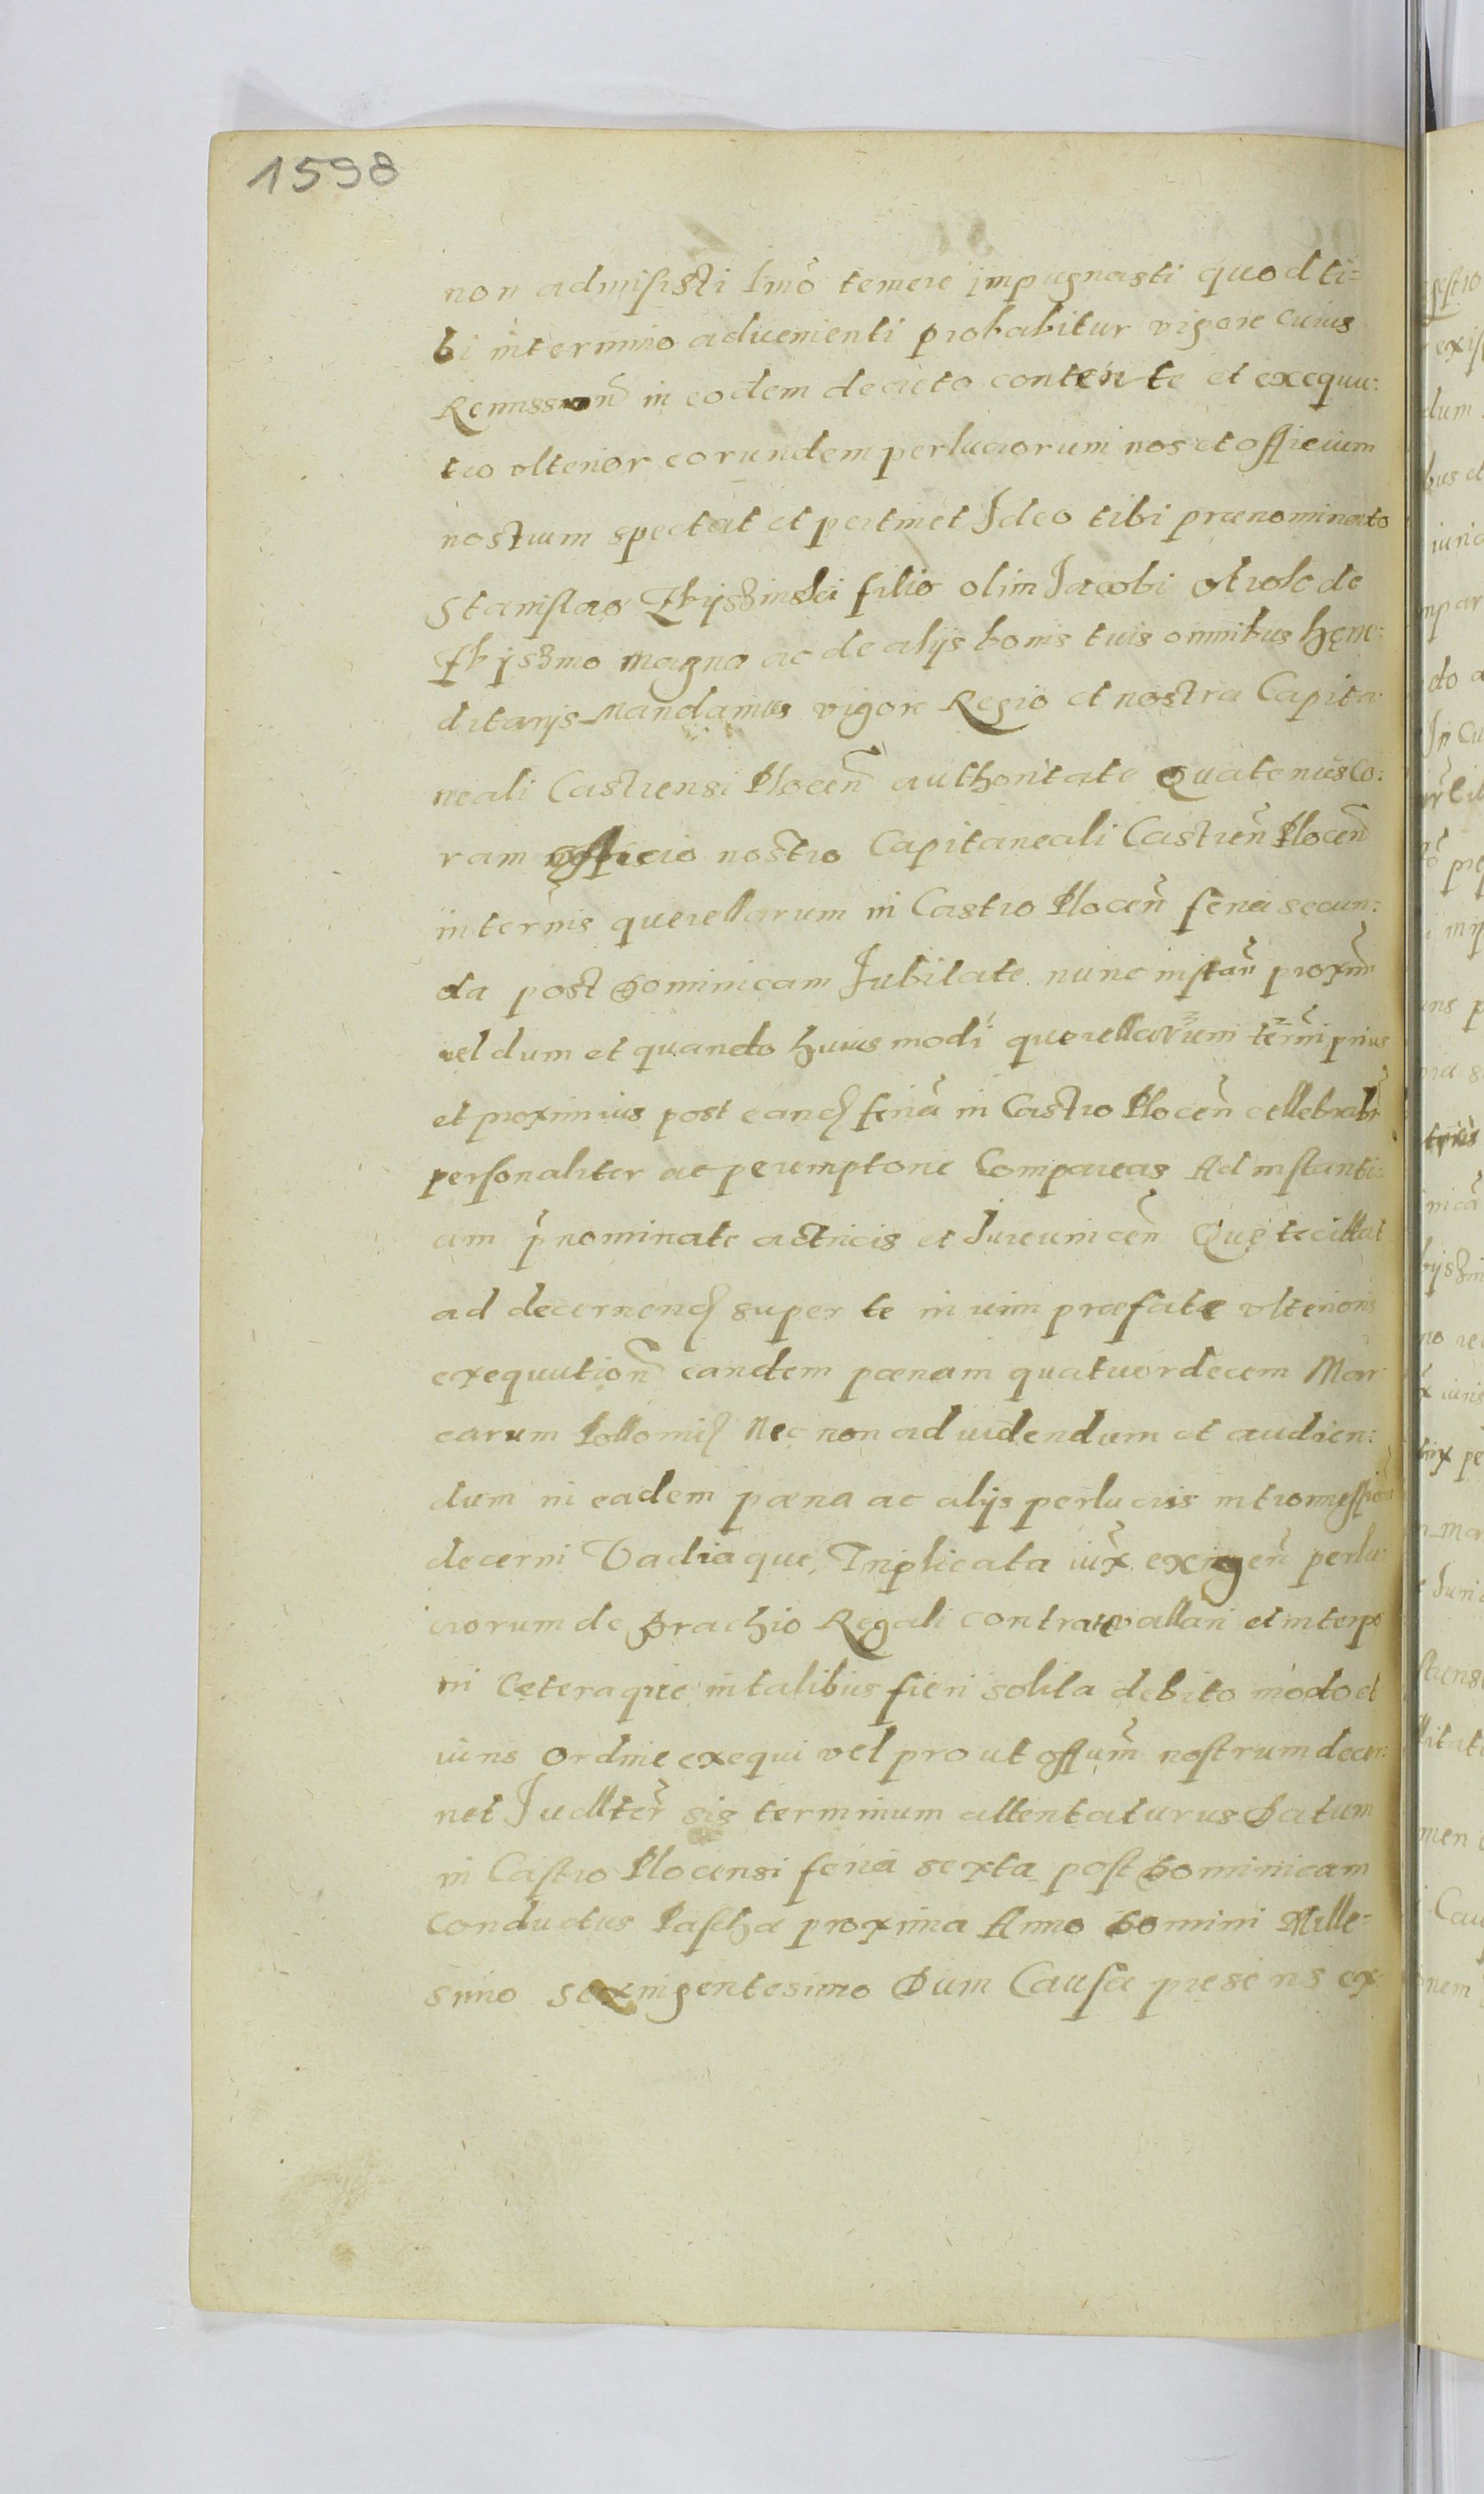 1598
non admisisti Imo temere impugnasti quod ti=
bi in termino aduenienti probabitur vigore cuius
Remission in eodem decreto contente et exequu:
tio vlterior eorundem perlucrorum nos et officium
nostrum spectat et pertinet Ideo tibi prænominato
Stanislao filio olim Jacobi de
magna ac de alijs bonis tuis omnibus hęre:
ditarijs mandamus vigore Regio et nostra Capita
neali Castrensi Plocen authoritate Quatenus Co:
ram officio nostro Capitaneali Castren Plocen
in ternis querellarum in Castro Plocen feria secun:
da post Dominicam Jubilate nunc instan proxim
vel dum et quando huius modi querellarum termi prius
et proximius post eand feria in Castro Plocen cellebrabr
personaliter ac peremptorie Compareas Ad instanti:
am p nominate actricis et Jureuincen Quę te cittat
ad decernend super te in vim præfate vlterioris
exequution eandem pœnam quatuordecem Mar
carum Pollonic Nec non ad uidendum et audien:
dum in eadem pœna ac alijs perlucris intromission
decerni Vadia que Triplicata iux exigen perlu:
crorum de Brachio Regali contrauallari et interpo
ni Cetera que in talibus fieri solita debito modo et
iuris ordine exequi vel pro ut offum nostrum decer:
net Judlter sis terminum attentaturus Datum
in Castro Plocensi feria sexta post Dominicam
Conductus Pascha proxima Anno Domini Mille=
simo sexingentesimo Dum Causa presens ex